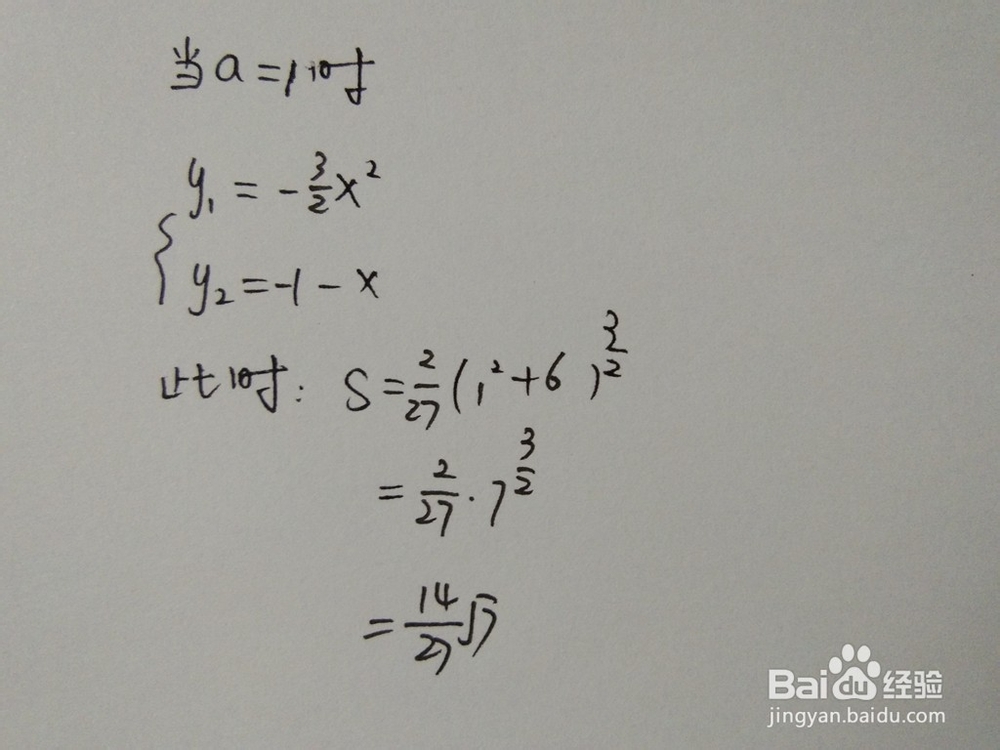 当a=1时
y₁=-3/2x²
y₂=-1-x
此时: S=2/27(1²+6)^(3/2)
=2/27·7^(3/2)
=14/27√7
Baidu经验
jingyan.baidu.com